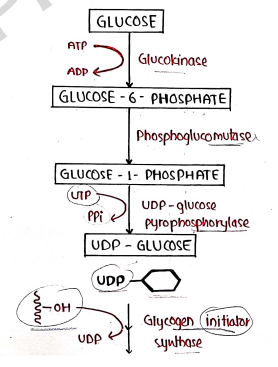 GLUCOSE
ATP
Glucokinase
ADP
GLUCOSE - 6 - PHOSPHATE
Phosphoglucomutase
GLUCOSE - 1 - PHOSPHATE
UTP
UDP - glucose
PPi
pyrophosphorylase
UDP - GLUCOSE
UDP
-OH
Glycogen initiator
UDP
synthase